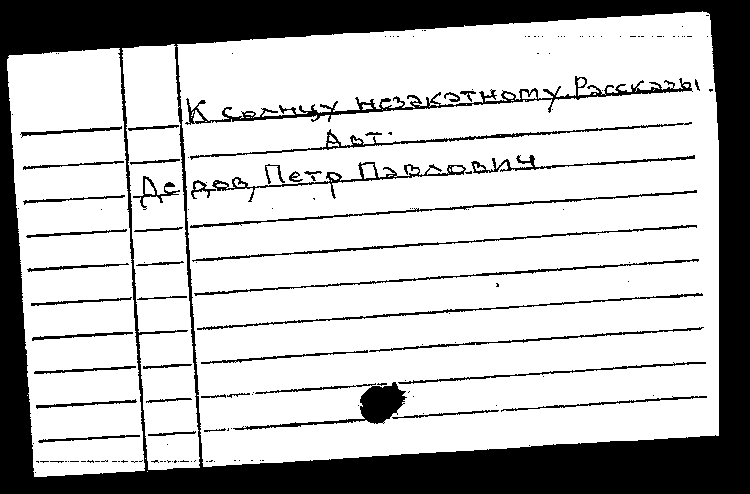 К солнцу незакатному. Рассказы.
Авт.
Дедов, Петр Павлович